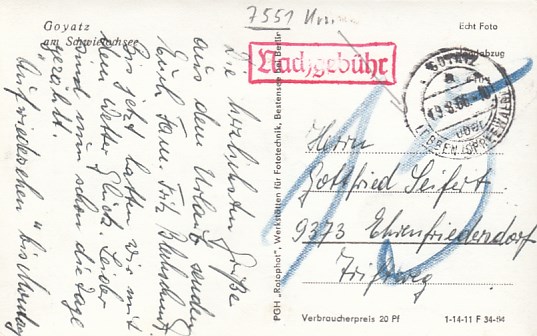 7551
Goyatz
am Schwielochsee
Echt Foto
Handabzug
Nachgebühr
GOYATZ
19.9.66
über
LÜBBEN (SPREEWALD)
Die herzlichsten Grüße
aus dem Urlaub sendet
Euch Fam. Fritz
Bis jetzt hatten wir mit
dem Wetter Glück. Leider
sind nun schon die Tage
gezählt.
"Auf wiedersehen" bis
PGH „Rotophot", Werkstätten für Fototechnik, Bestensee bei Berlin
Herrn
Gottfried Seifert
9373 Ehrenfriedersdorf
Verbraucherpreis 20 Pf
1-14-11 F 34-94